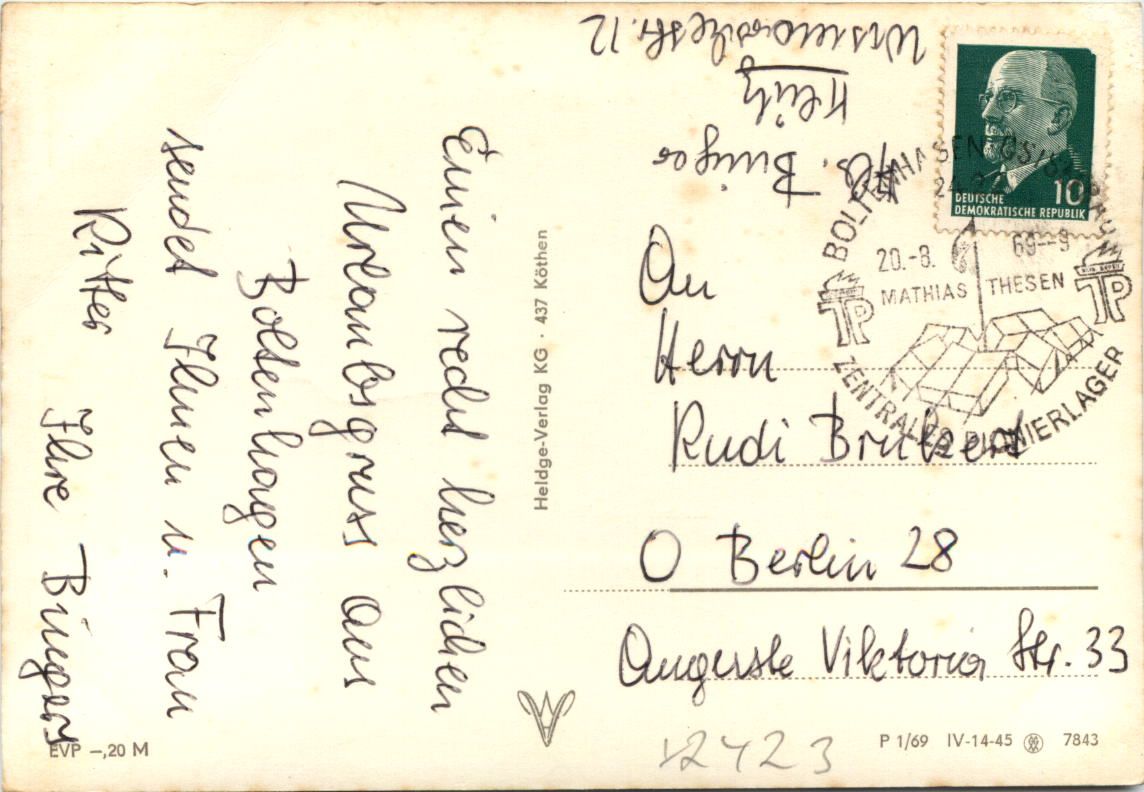 Einen recht herzlichen
Urlaubsgruss aus
Boltenhagen
sendet Ihnen u. Frau
Ritter
Ihre Büngers
EVP –,20 M
Heldge-Verlag KG · 437 Köthen
Wismarschestr. 12
Klütz
Abs. Bünger
DEUTSCHE
DEMOKRATISCHE REPUBLIK
10
BOLTENHAGEN
20.-8. 69--9
MATHIAS THESEN
ZENTRALES PIONIERLAGER
An
Herrn
Rudi
O Berlin 28
Auguste Viktoria Str. 33
P 1/69 IV-14-45 7843
12423